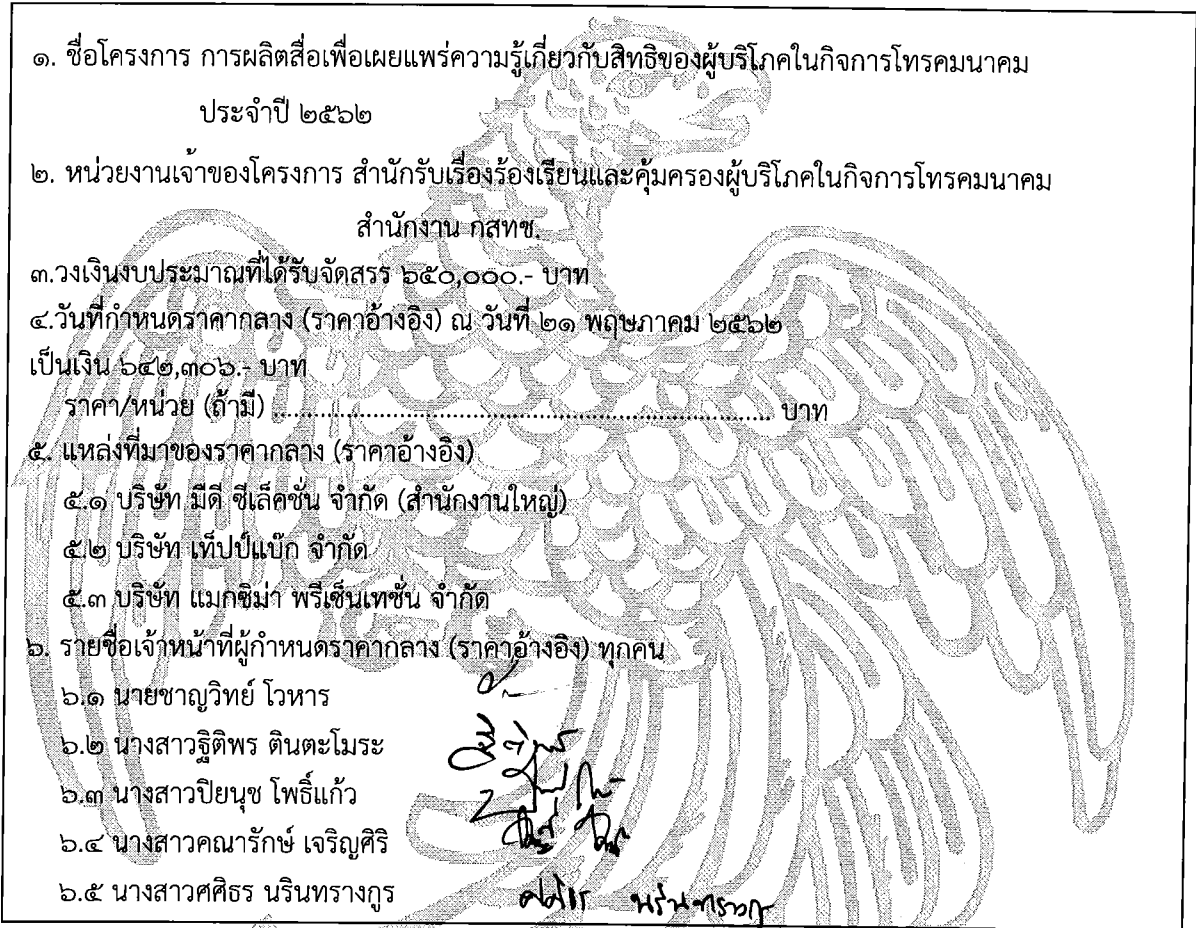 ๑. ชื่อโครงการ การผลิตสื่อเพื่อเผยแพร่ความรู้เกี่ยวกับสิทธิของผู้บริโภคในกิจการโทรคมนาคม
ประจำปี ๒๕๖๒
๒. หน่วยงานเจ้าของโครงการ สำนักรับเรื่องร้องเรียนและคุ้มครองผู้บริโภคในกิจการโทรคมนาคม
สำนักงาน กสทช.
๓.วงเงินงบประมาณที่ได้รับจัดสรร ๖๕๐,๐๐๐.- บาท
๔.วันที่กำหนดราคากลาง (ราคาอ้างอิง) ณ วันที่ ๒๑ พฤษภาคม ๒๕๖๒
เป็นเงิน ๖๔๒,๓๐๖.- บาท
ราคา/หน่วย (ถ้ามี) ........................................................................ บาท
๕. แหล่งที่มาของราคากลาง (ราคาอ้างอิง)
๕.๑ บริษัท มีดี ซีเล็คชั่น จำกัด (สำนักงานใหญ่)
๕.๒ บริษัท เท็ปป์แบ๊ก จำกัด
๕.๓ บริษัท แมกซิม่า พรีเซ็นเทชั่น จำกัด
๖. รายชื่อเจ้าหน้าที่ผู้กำหนดราคากลาง (ราคาอ้างอิง) ทุกคน
๖.๑ นายชาญวิทย์ โวหาร
๖.๒ นางสาวฐิติพร ตินตะโมระ
๖.๓ นางสาวปิยนุช โพธิ์แก้ว
๖.๔ นางสาวคณารักษ์ เจริญศิริ
๖.๕ นางสาวศศิธร นรินทรางกูร